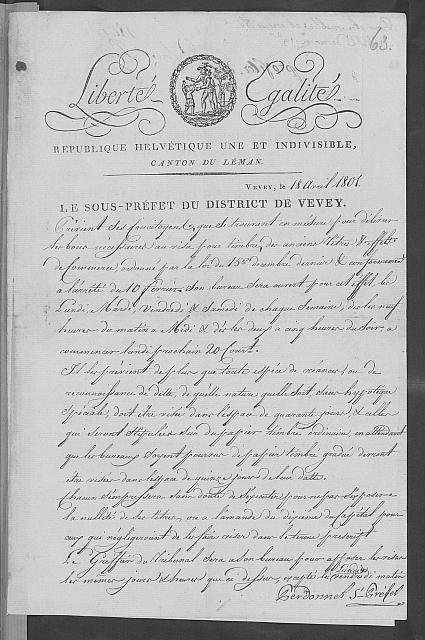 63.
Liberté Egalité
REPUBLIQUE HELVÉTIQUE UNE ET INDIVISIBLE,
CANTON DU LÉMAN.
VEVEY, le 18 Avril 1801.
LE SOUS-PRÉFET DU DISTRICT DE VEVEY.
Prévient ses Concitoyens, que se trouvant en mésure pour délivrer
les bons nécessaires au visa pour timbre, des anciens titres & effets
de Commerce, ordonné par la loi du 15e decembre dernier & conformément
à l'arrêté du 10 fevrier. Son bureau sera ouvert pour cet effet, les
Lundi, Mardi, Vendredi & Samedi de chaque Semaine, dès les neuf
heures du matin à Midi & dès les deux à cinq heures du Soir, à
commencer lundi prochain 20 Cour.t
Il les prévient de plus que toute espèce de créances, ou de
reconnoissance de dette, de quelle nature quelle soit, sans hypotèque
spéciale, doit être visée dans lespace de quarante jours, & celles
qui seront stipulées sur du papier timbre ordinaire, en attendant
que les bureaux soyent pourvus de papier timbré gradué devront
être visées dans lespace de quinze jours de leur datte.
Chacun s'empressera sans doute de s'exempter pour ne pas s'exposer à
la nullité de ses titres, ou à lamande du dixième du Capital pour
ceux qui négligeront de les faire viser dans le terme prescrit
Le Greffier du Tribunal sera à son bureau pour apposer les visas
les mêmes jours & heures que ci dessus, excepté le vendredi matin
Perdonnet S. Préfet